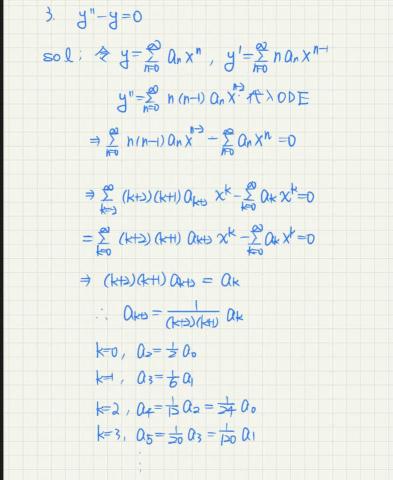 3. y''-y=0
sol: 令 y=∑_{n=0}^{∞} a_n x^n, y'=∑_{n=0}^{∞} n a_n x^{n-1}
y''=∑_{n=0}^{∞} n(n-1) a_n x^{n-2} 代入ODE
⇒ ∑_{n=0}^{∞} n(n-1) a_n x^{n-2} - ∑_{n=0}^{∞} a_n x^n = 0
⇒ ∑_{k=-2}^{∞} (k+2)(k+1) a_{k+2} x^k - ∑_{k=0}^{∞} a_k x^k = 0
= ∑_{k=0}^{∞} (k+2)(k+1) a_{k+2} x^k - ∑_{k=0}^{∞} a_k x^k = 0
⇒ (k+2)(k+1) a_{k+2} = a_k
∴ a_{k+2} = \frac{1}{(k+2)(k+1)} a_k
k=0, a_2 = \frac{1}{2} a_0
k=1, a_3 = \frac{1}{6} a_1
k=2, a_4 = \frac{1}{12} a_2 = \frac{1}{24} a_0
k=3, a_5 = \frac{1}{20} a_3 = \frac{1}{120} a_1
⋮